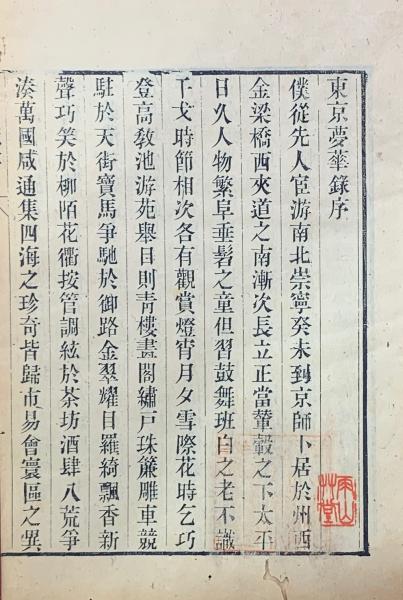 東京夢華錄序
僕從先人宦游南北崇寧癸未到京師卜居於州西
金梁橋西夾道之南漸次長立正當輦轂之下太平
日久人物繁阜垂髫之童但習鼓舞班白之老不識
干戈時節相次各有觀賞燈宵月夕雪際花時乞巧
登高教池游苑舉目則青樓畫閣繡戶珠簾雕車競
駐於天街寶馬爭馳於御路金翠耀目羅綺飄香新
聲巧笑於柳陌花衢按管調絃於茶坊酒肆八荒爭
湊萬國咸通集四海之珍奇皆歸市易會寰區之異
雨山草堂